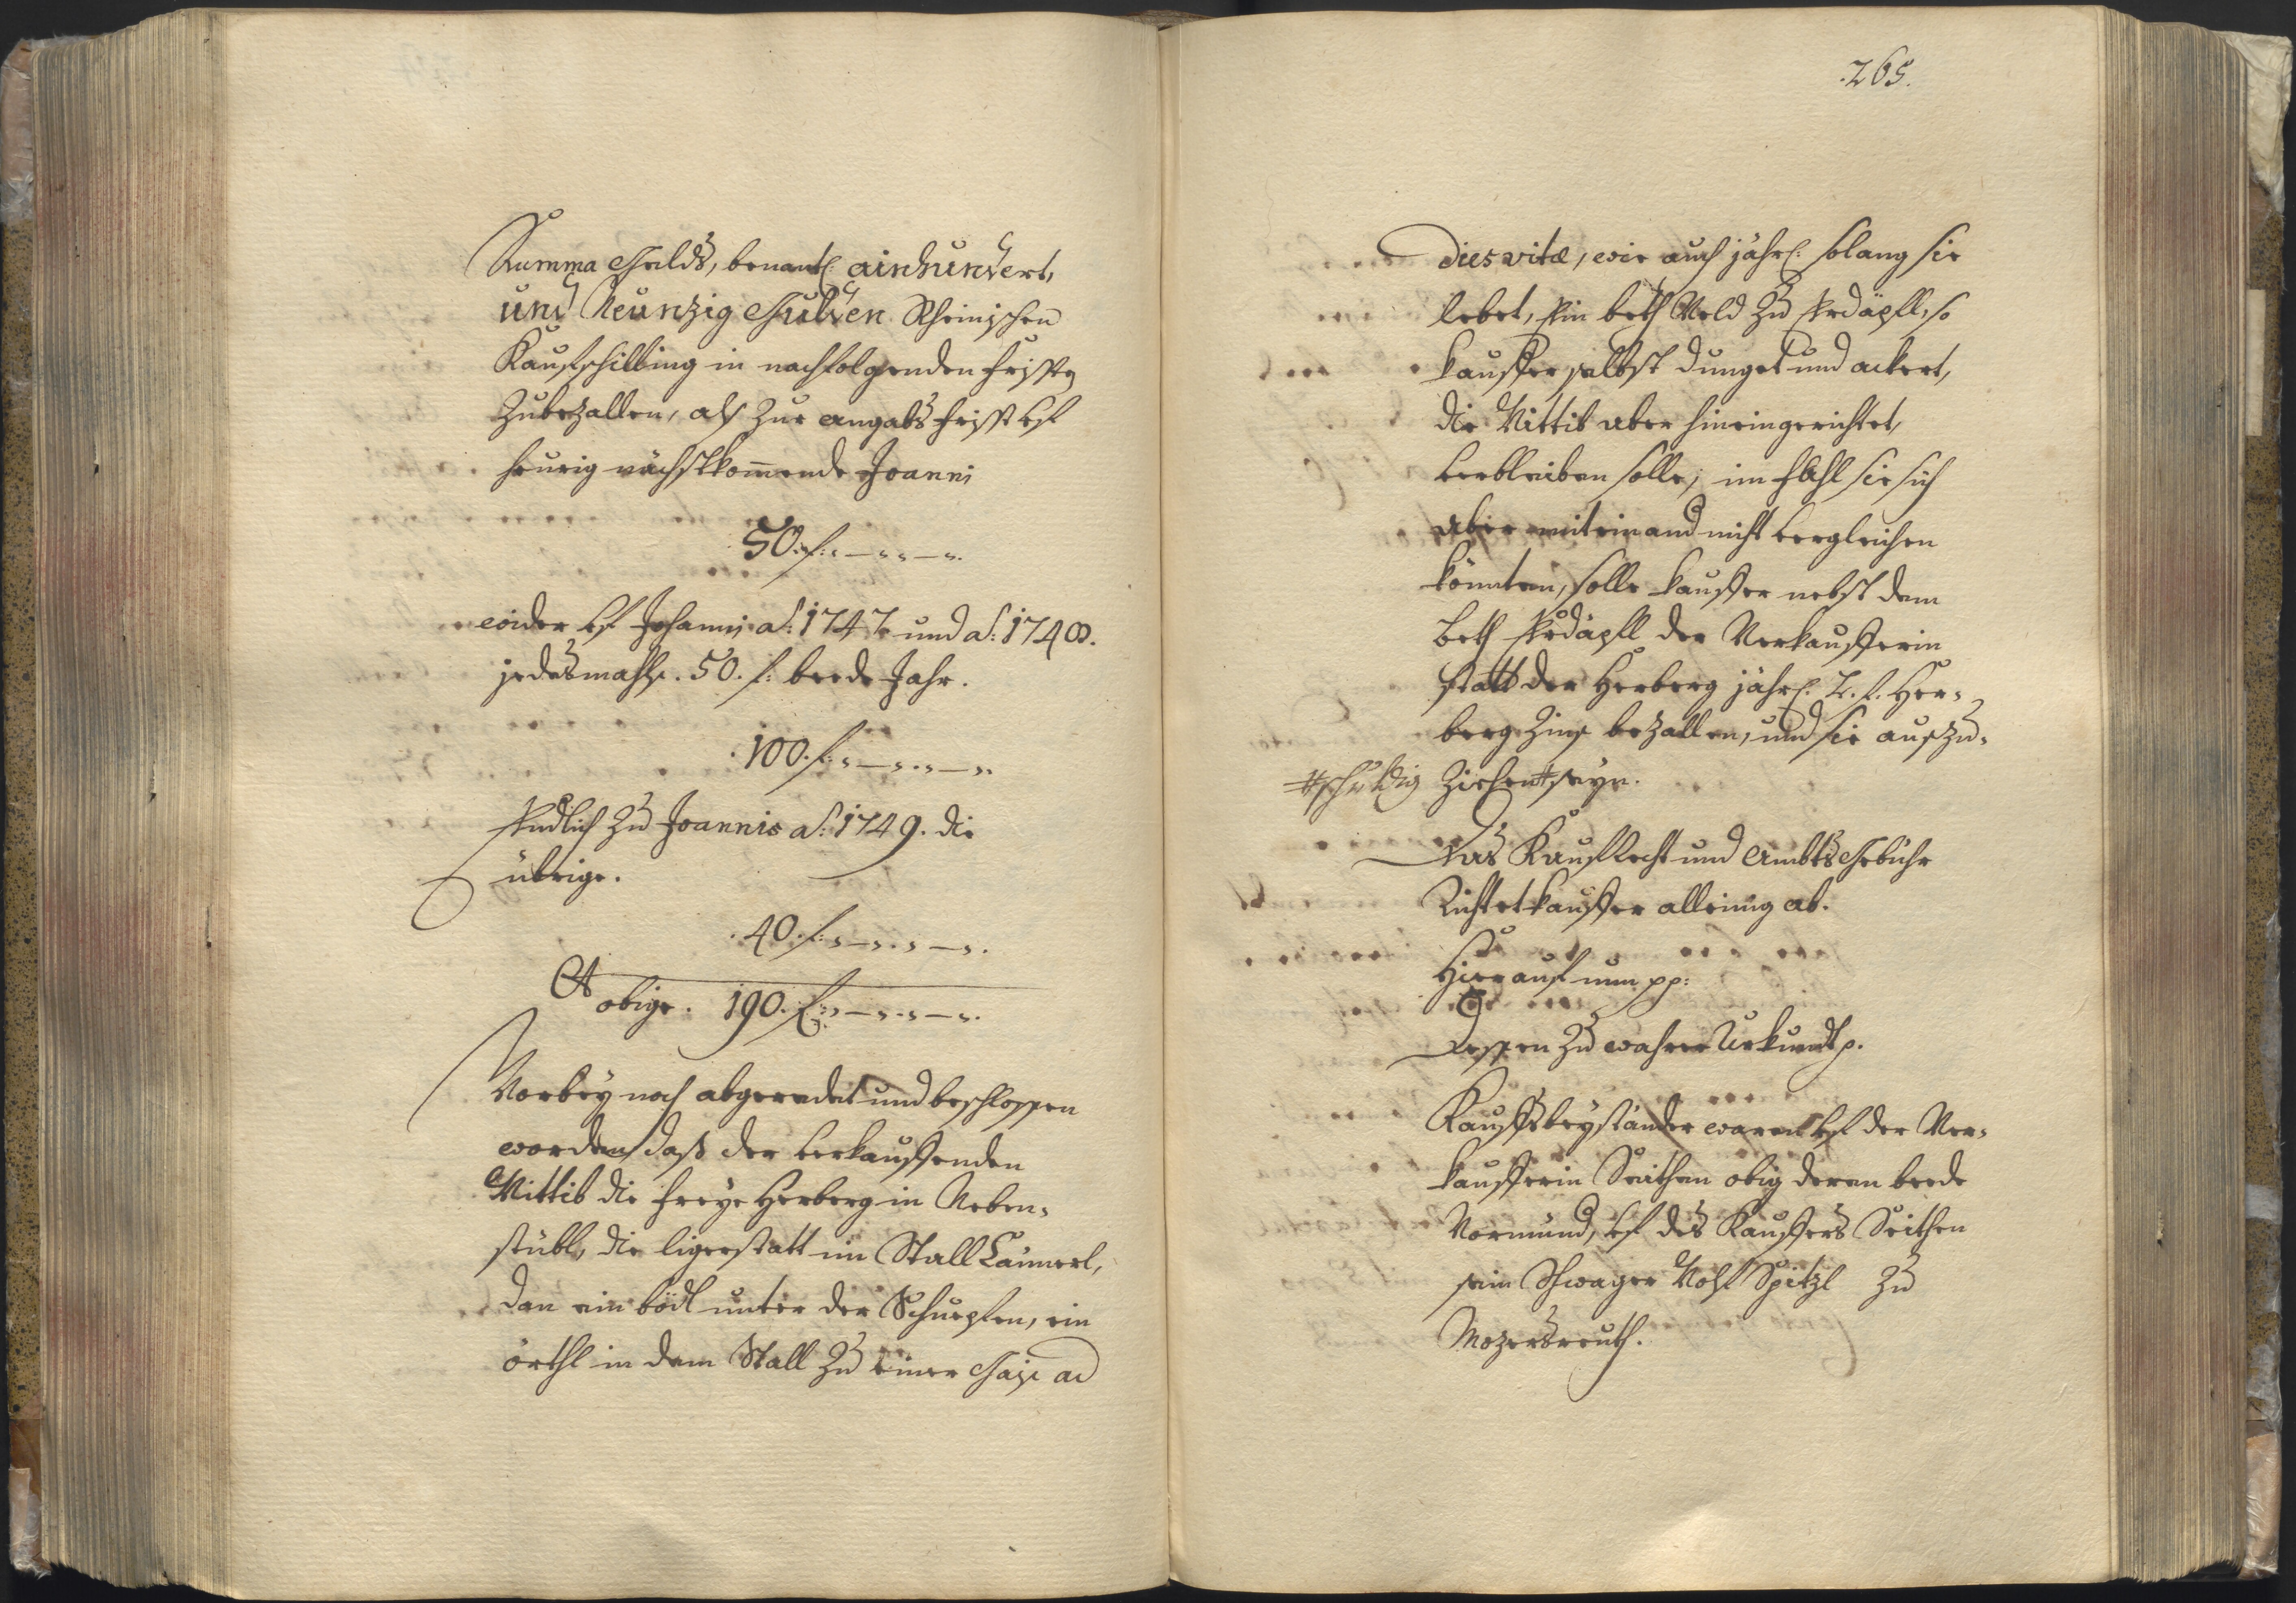 Summa Gelds, benantl: ainhundert,
und Neunzig Gulden Rheinischen
Kaufschilling in nachfolgenden Fristen
Zubezallen, als Zur angabs Frist auf
heurig nächstkommende Joanni
50. f: „ — „ „ — „.
wider auf Johanni a͠: 1747. und a͠: 1748.
jedesmahls. 50. f: beede Jahr.
100. f: „ — „ . „ — „.
Endlich Zu Joannis a͠: 1749. die
übrige.
40. f: „ — „ . „ — „.
Et obige. 190. f: „ — „ . „ — „.
Vorbey noch abgeredet und beschlossen
worden, daß der verkauffenden
Wittib die freye Herberg in Neben-
stübl, die ligerstatt im Stall Cämmerl,
dan ein bödl unter der Schupfen, ein
örthl in dem Stall Zu einer Gaiß ad
.265.
dies vitæ, wie auch jährl: solang sie
lebet, Ein beth Veld Zu Erdäpfl, so
Kauffer selbst dunget und ackert,
die Wittib aber hineingerichtet,
verbleiben solle; im Fahl sie sich
aber miteinand nicht vergleichen
könnten, solle Kauffer nebst dem
beth Erdäpfl der Verkaufferin
statt der Herberg jährl: 2. f. Her-
berg Zins bezallen, und sie auszu-
#schuldig Ziehen # seyn.
Das Kaufrecht und Ambts Gebühr
Richtet Kauffer alleinig ab.
Hierauf nun pp:
Dessen Zu wahrer Urkundt p.
Kauffsbeyständer waren auf der Ver-
kaufferin Seithen obig deren beede
Vormund, auf des Kauffers Seithen
sein Schwager Wolf Spitzl Zu
Mozersreuth.